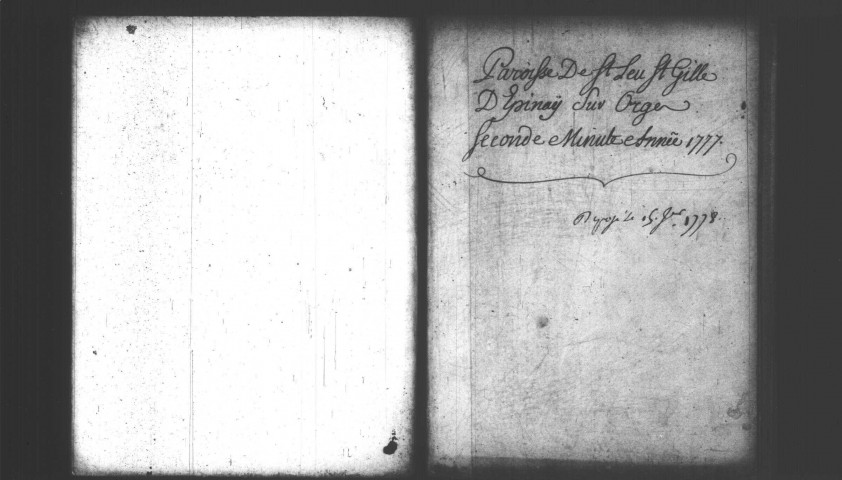 Paroisse De St Leu St Gille
D'Epinaÿ Sur Orge
Seconde Minute Année 1777.
Deposé le 15. Jer. 1778.